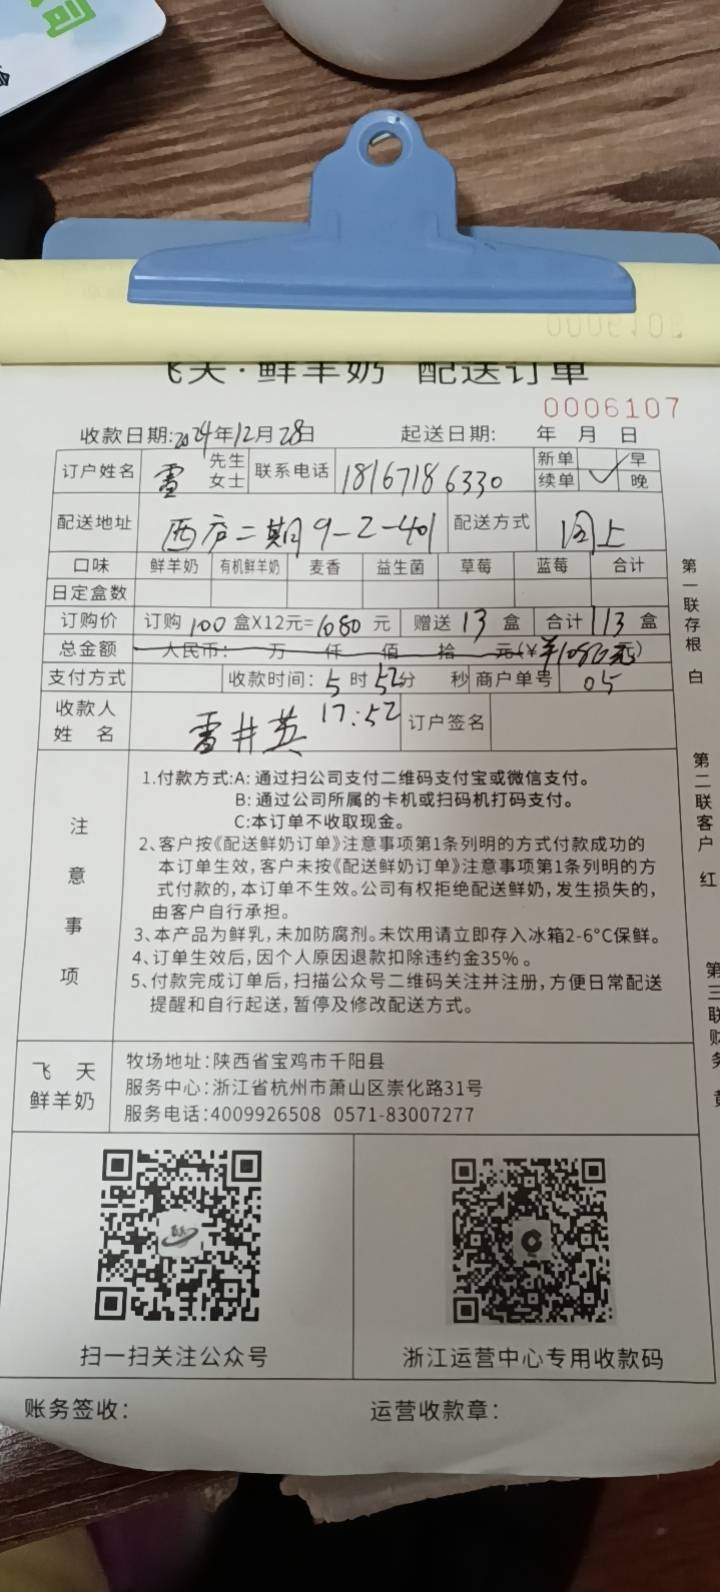 司
飞天·鲜羊奶 配送订单
0006107
收款日期:2024年12月28日 起送日期: 年 月 日
订户姓名 雷 先生 女士 联系电话 18167186330 新单 续单 ✓ 早 晚
配送地址 西庐二期9-2-401 配送方式 同上
口味 鲜羊奶 有机鲜羊奶 麦香 益生菌 草莓 蓝莓 合计
日定盒数
订购价 订购100盒X12元=1080元 赠送13盒 合计113盒
总金额 人民币: 万 仟 佰 拾 元(¥ 1080元)
支付方式 收款时间:5时52分 秒 商户单号 05
收款人姓名 雷井英 17:52 订户签名
注意事项
1.付款方式:A:通过扫公司支付二维码支付宝或微信支付。
B:通过公司所属的卡机或扫码机打码支付。
C:本订单不收取现金。
2、客户按《配送鲜奶订单》注意事项第1条列明的方式付款成功的
本订单生效,客户未按《配送鲜奶订单》注意事项第1条列明的方
式付款的,本订单不生效。公司有权拒绝配送鲜奶,发生损失的,
由客户自行承担。
3、本产品为鲜乳,未加防腐剂。未饮用请立即存入冰箱2-6°C保鲜。
4、订单生效后,因个人原因退款扣除违约金35%。
5、付款完成订单后,扫描公众号二维码关注并注册,方便日常配送
提醒和自行起送,暂停及修改配送方式。
飞天
鲜羊奶
牧场地址:陕西省宝鸡市千阳县
服务中心:浙江省杭州市萧山区崇化路31号
服务电话:4009926508 0571-83007277
扫一扫关注公众号 浙江运营中心专用收款码
账务签收: 运营收款章:
第一联存根 白
第二联客户 红
第三联财务 黄